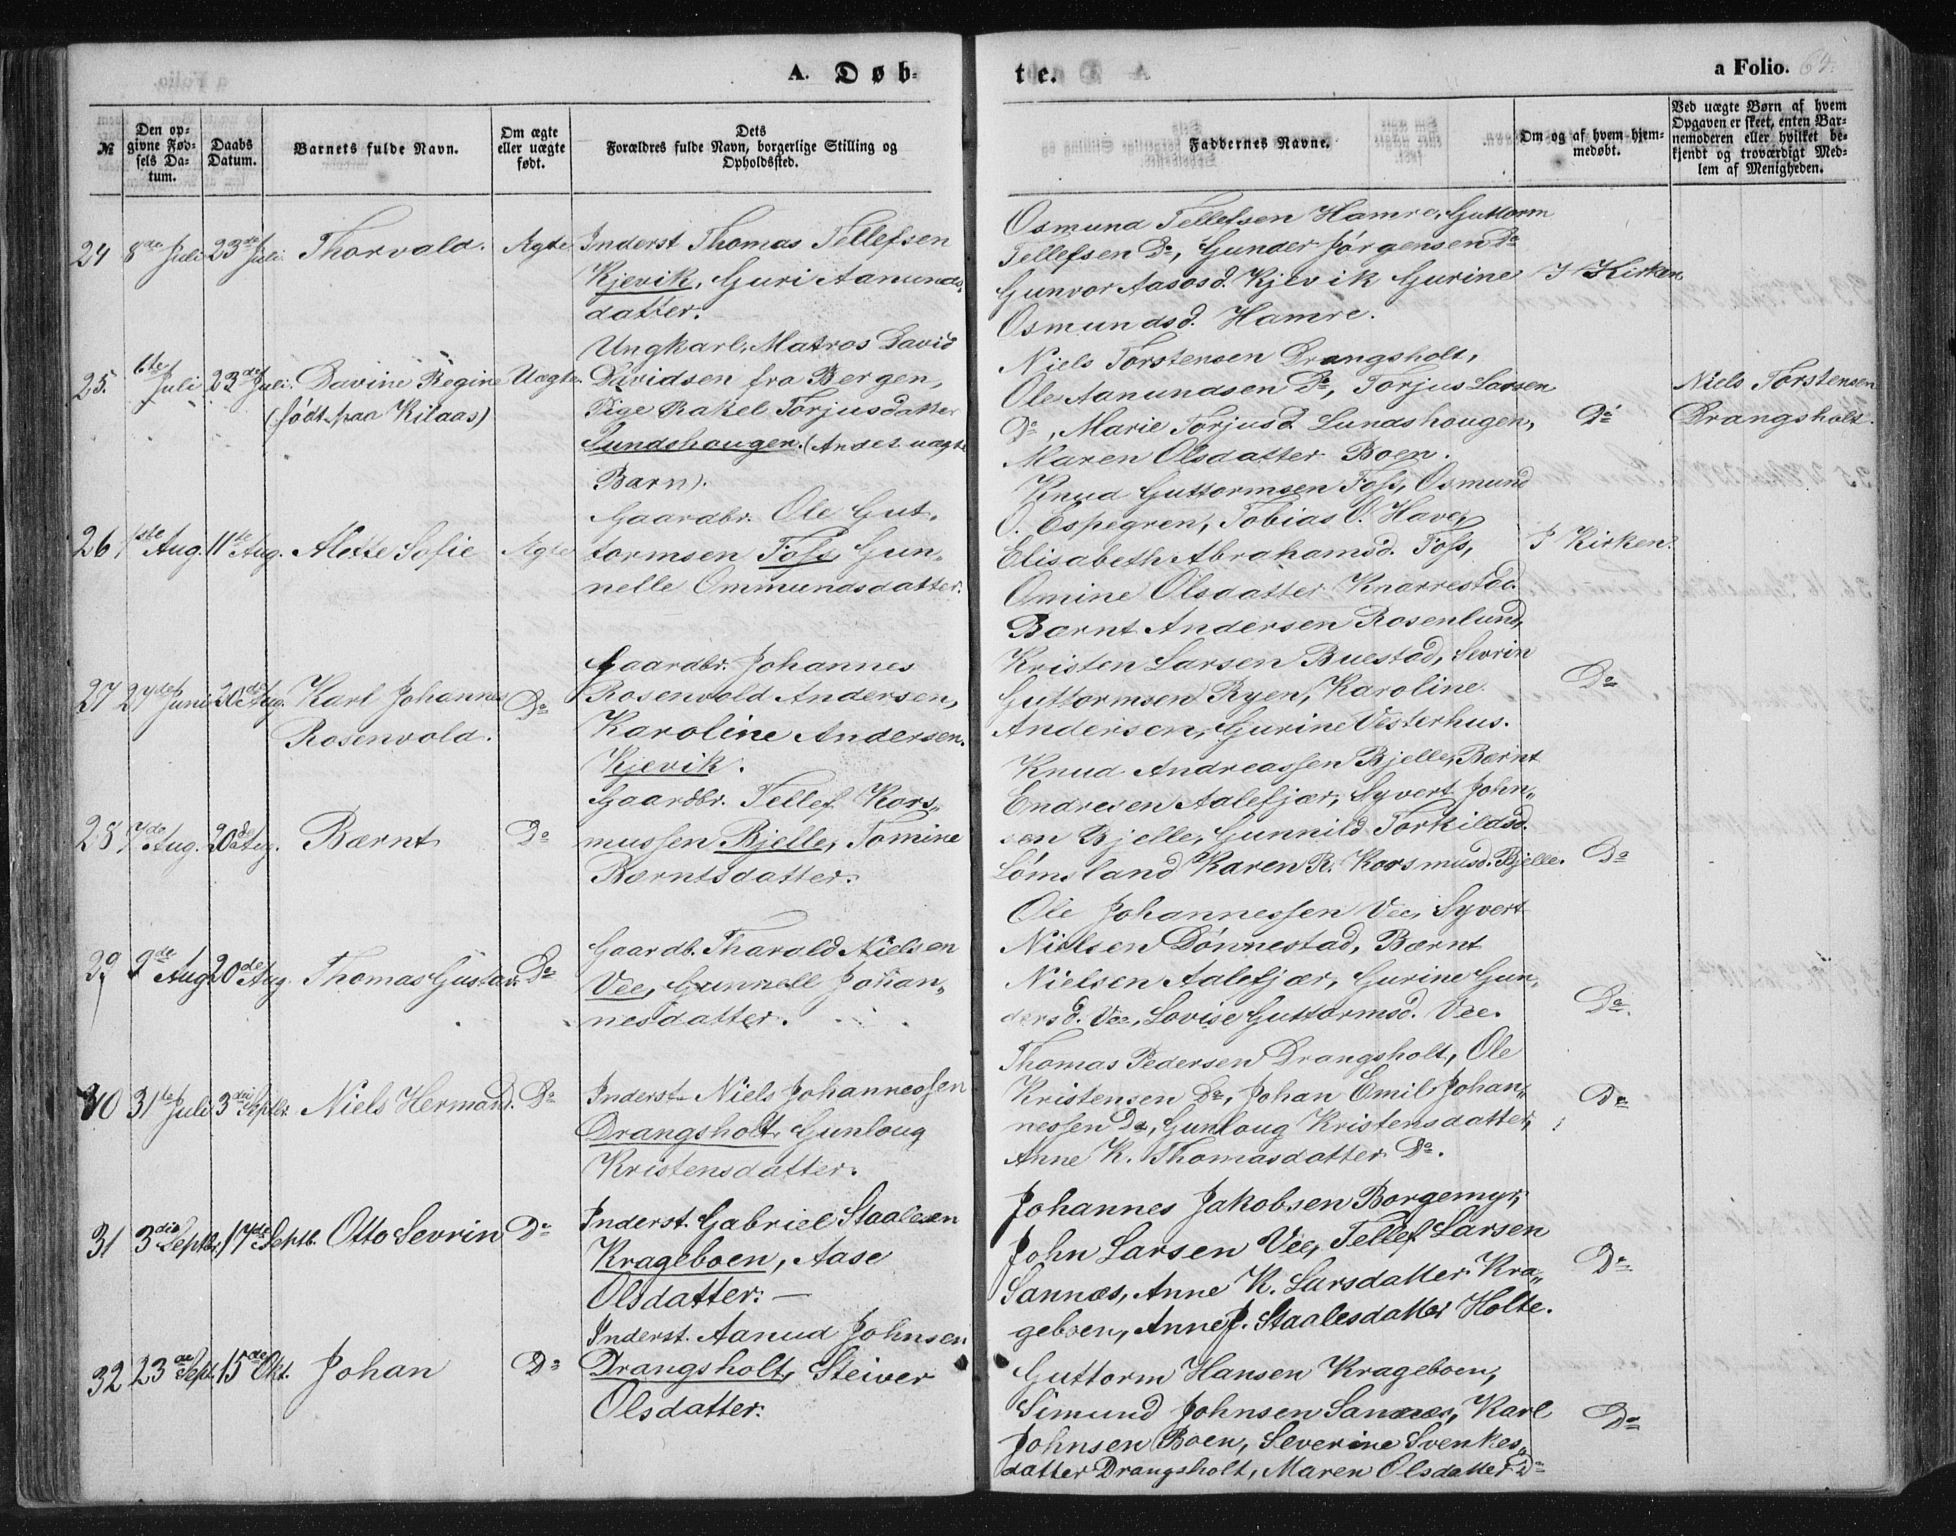 A. Døb-
te.
a Folio. 64.
№
Den opgivne Fødsels Datum.
Daabs Datum.
Barnets fulde Navn.
Om ægte eller uægte født.
Dets Forældres fulde Navn, borgerlige Stilling og Opholdssted.
Faddernes Navne.
Om og af hvem hjemmedøbt.
Ved uægte Børn af hvem Opgaven er skeet, enten Barnemoderen eller hvilket bekjendt og troværdigt Medlem af Menigheden.
24 8de Juli 23de Juli. Thorvald. Ægte
Inderst Thomas Tellefsen
Kjevik, Guri Aamunds-
datter.
Osmund Tellefsen Hamre, Guttorm
Tellefsen Do, Gunder Jørgensen Do
Gunvor Aasosd. Kjevik Gurine
Osmundsd. Hamre.
I Kirken
25. 6te Juli 23de Juli. Davine Regine Uægte.
(født paa Kilaas)
Ungkarl, Matros David
Davidsen fra Bergen,
Pige Rakel Torjusdatter
Lundshougen. (Andet uægte
Barn).
Niels Torstensen Drangsholt,
Ole Aanundsen Do, Torjus Larsen
Do, Marie Torjusd. Lundshougen,
Maren Olsdatter Boen.
Do
Niels Torstensen
Drangsholt.
26 1ste Aug. 11te Aug. Alette Sofie Ægte
Gaardbr. Ole Gut-
tormsen Foss, Gun-
nelle Ommundsdatter.
Knud Guttormsen Foss, Osmund
O. Espegren, Tobias O. Have,
Elisabeth Abrahamsd. Foss,
Omine Olsdatter Knarrestad.
I Kirken.
27 27de Juni 20de Aug. Karl Johannes
Rosenvold. Do
Gaardbr. Johannes
Rosenvold Andersen,
Karoline Andersen.
Kjevik.
Bærnt Andersen Rosenlund,
Kristen Larsen Buestad, Sevrin
Guttormsen Ryen, Karoline
Andersen, Gurine Vesterhus.
Do
28 7de Aug. 20de Aug. Bærnt Do
Gaardbr. Tellef Kors-
mussen Bjelle, Tomine
Bærntsdatter.
Knud Andreassen Bjelle, Bærnt
Endresen Aalefjær, Syvert John-
sen Bjelle, Gunnild Torkildsd.
Lømsland Karen R. Korsmusd. Bjelle.
Do
29 2de Aug 20de Aug. Thomas Gustav. Do
Gaardb. Tharald Nielsen
Vee, Gunnell Johan-
nesdatter.
Ole Johannessen Vee, Syvert
Nielsen Dønnestad, Bærnt
Nielsen Aalefjær, Gurine Gun-
dersd. Vee, Lovise Guttormsd. Vee.
Do.
30 31te Juli 3die Septbr. Niels Hermand. Do
Inderst Niels Johannessen
Drangsholt, Gunloug
Kristensdatter.
Thomas Pedersen Drangsholt, Ole
Kristensen Do, Johan Emil Johan-
nessen Do, Gunloug Kristensdatter,
Anne K. Thomasdatter Do.
Do
31 3die Septbr. 17de Septb. Otto Sevrin Do
Inderst. Gabriel Staalesen
Krageboen, Aase
Olsdatter. —
Johannes Jakobsen Borgemyr,
John Larsen Vee, Tellef Larsen
Sannæs, Anne K. Larsdatter Kra-
geboen, Anne J. Staalesdatter Holte.
Do
32 23de Sept. 15de Okt. Johan Do
Inderst. Aanud Johnsen
Drangsholt, Steiver
Olsdatter.
Guttorm Hansen Krageboen,
Simund Johnsen Sannæs, Karl
Johnsen Boen, Severine Svenkes-
datter Drangsholt, Maren Olsdatter Do
Do